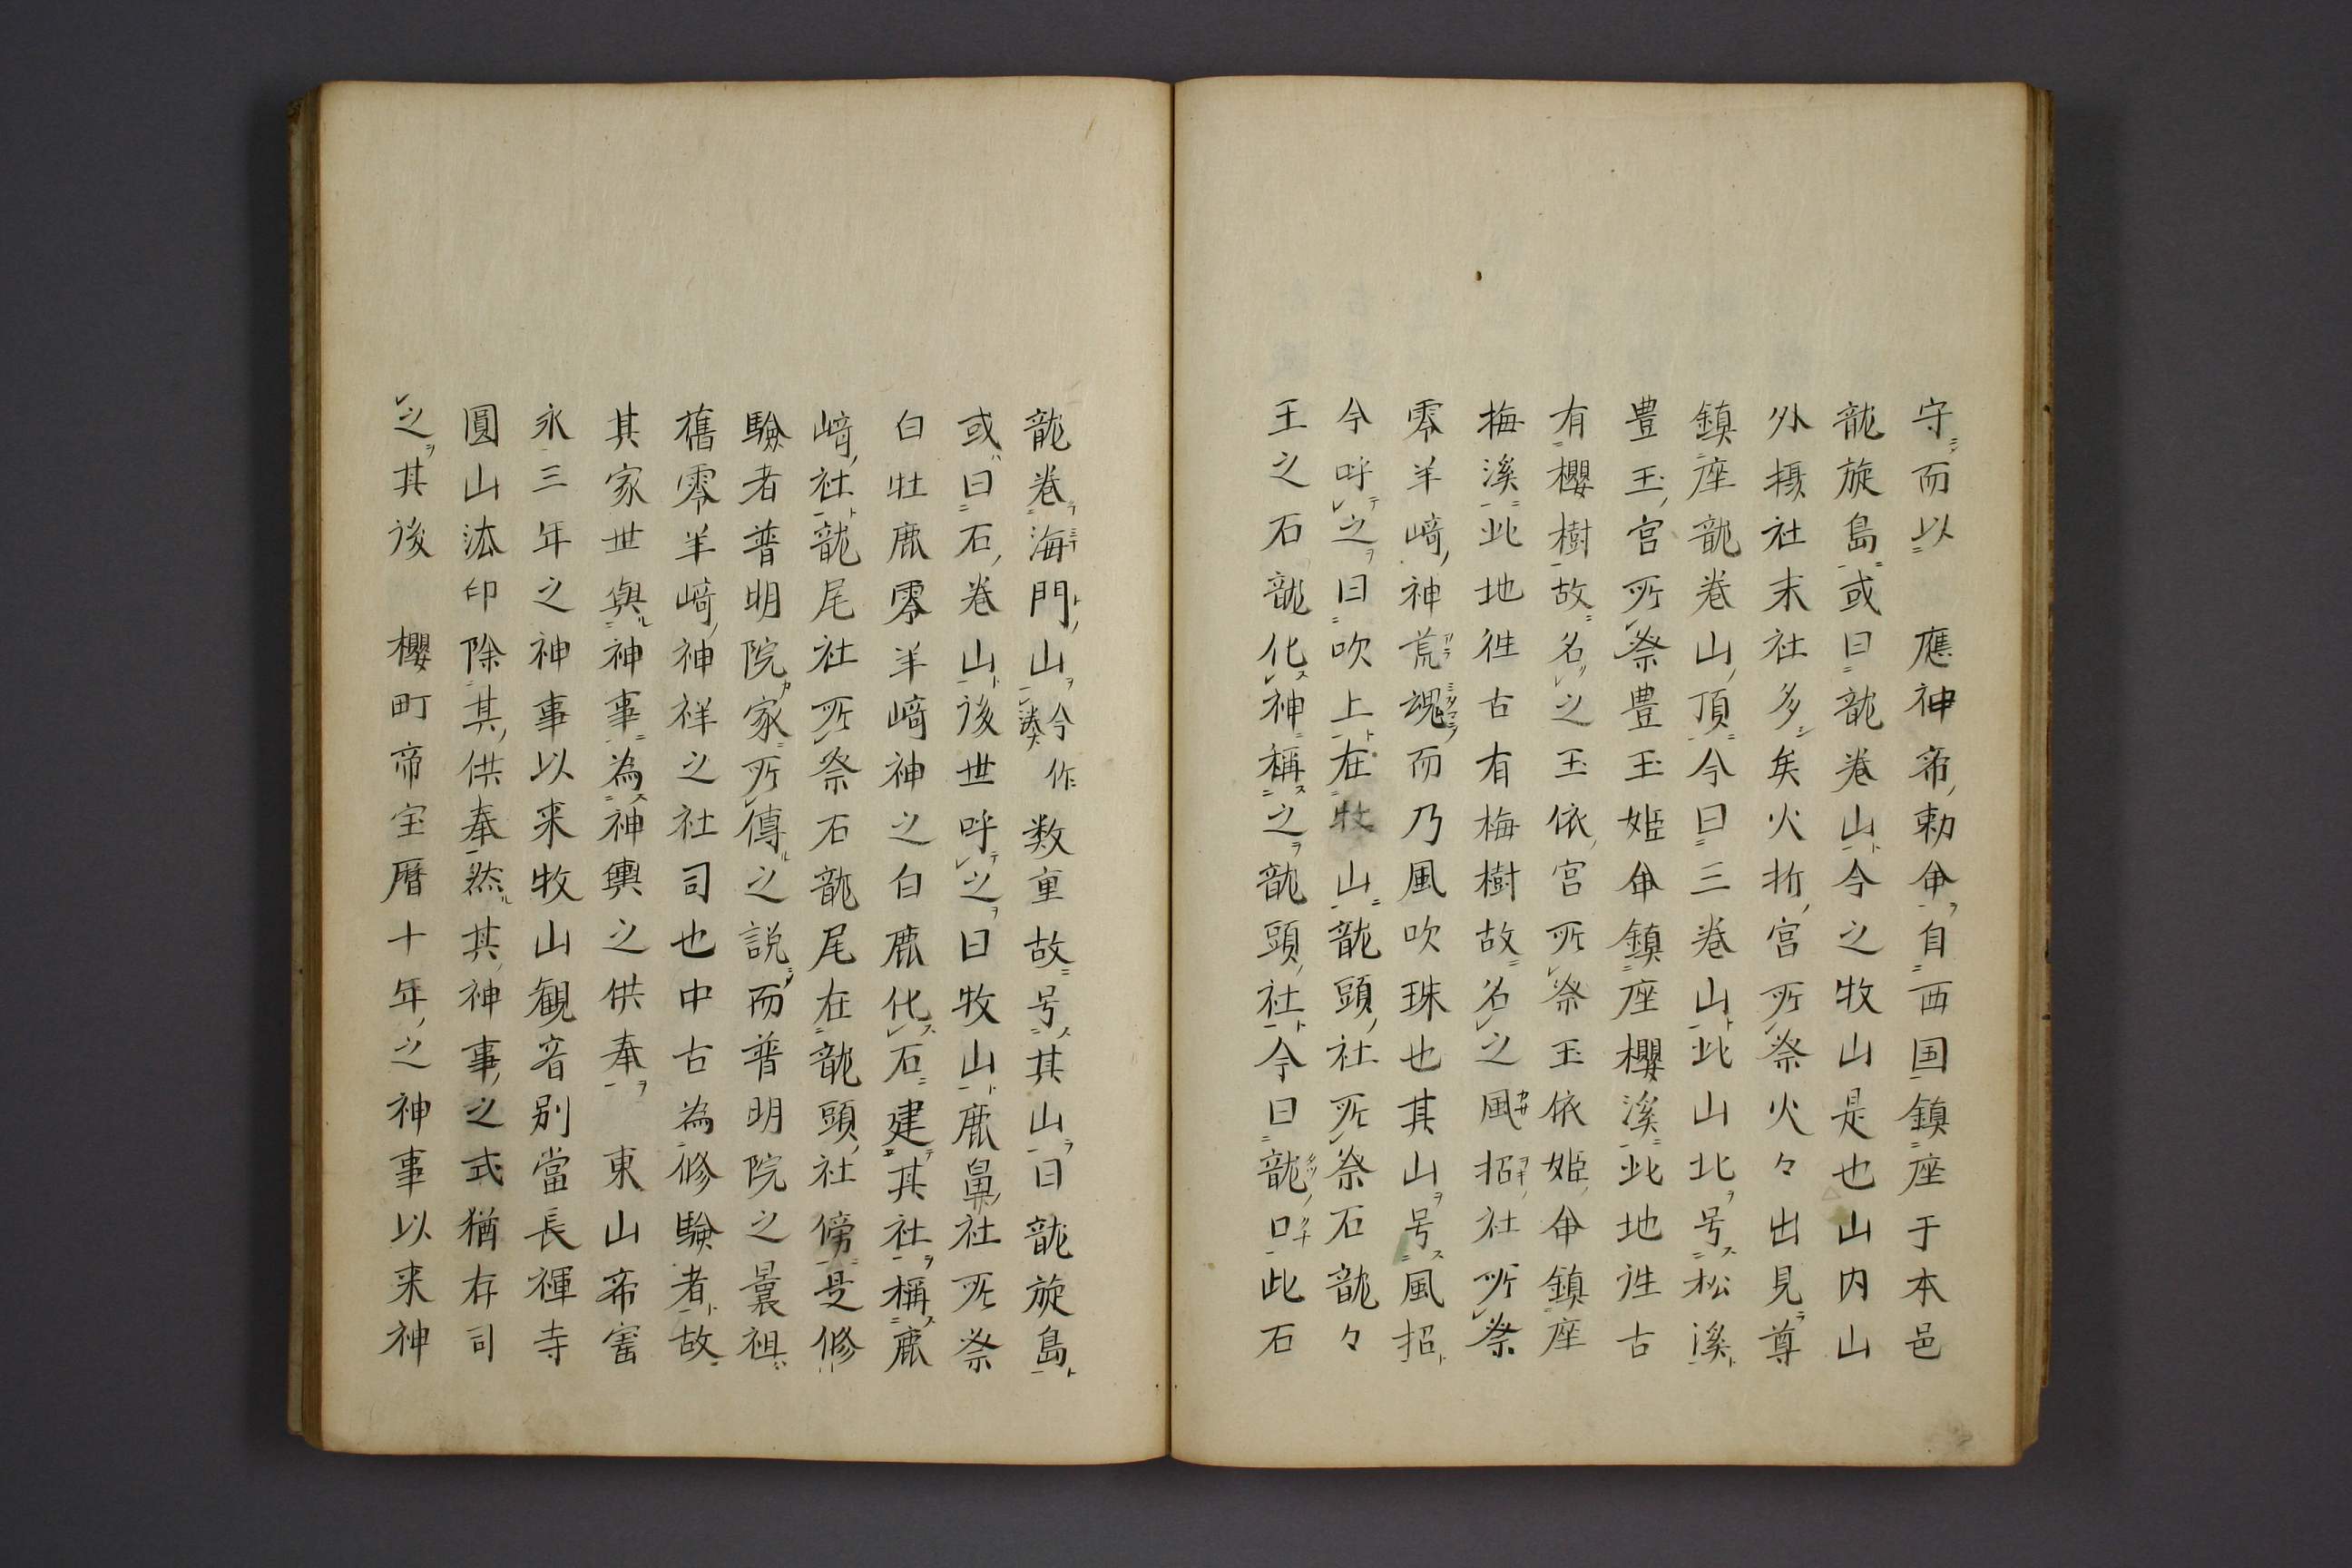 守而以　應神帝勅命自西国鎮座于本邑
龍旋島或曰龍巻山今之牧山是也山内山
外摂社末社多矣火折宮所祭火々出見尊
鎮座龍巻山頂今曰三巻山此山北号松溪
豊玉宮所祭豊玉姫命鎮座櫻溪此地往古
有櫻樹故名之玉依宮所祭玉依姫命鎮座
梅溪此地往古有梅樹故名之風招社所祭
零羊﨑神荒魂而乃風吹珠也其山号風招
今呼之曰吹上在牧山龍頭社所祭石龍々
王之石龍化神稱之龍頭社今曰龍口此石
龍巻海門山今作湊数重故号其山曰龍旋島
或曰石巻山後世呼之曰牧山鹿鼻社所祭
白牡鹿零羊﨑神之白鹿化石建其社稱鹿
﨑社龍尾社所祭石龍尾在龍頭社傍是修
驗者普明院家所傳之説而普明院之曩祖
舊零羊﨑神祥之社司也中古為修驗者故
其家世與神事為神輿之供奉　東山帝宝
永三年之神事以来牧山観音別當長禪寺
圓山法印除其供奉然其神事之式猶存司
之其後　櫻町帝宝暦十年之神事以来神